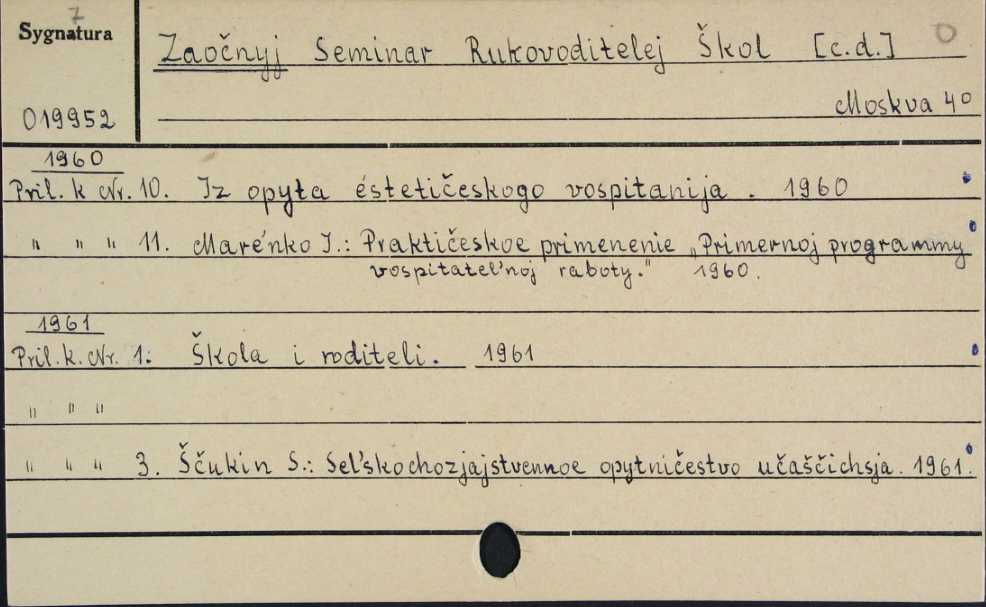 7
Sygnatura
Zaočnyj Seminar Rukovoditelej Škol [c.d.] O
019952
Moskva 40
1960
Pril. k Nr. 10. Iz opyta éstetičeskogo vospitanija. 1960
" " " 11. Marénko I.: Praktičeskoe primenenie „Primernoj programmy
vospitatel'noj raboty." 1960.
1961
Pril. k. Nr. 1. Škola i roditeli. 1961
" " "
" " " 3. Ščukin S.: Sel'skochozjajstvennoe opytničestvo učaščichsja. 1961.